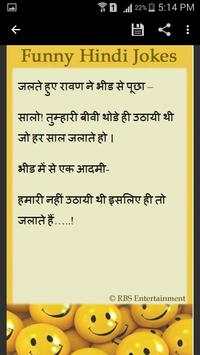 51% 5:14 PM
Funny Hindi Jokes
जलते हुए रावण ने भीड से पूछा –
सालो! तुम्हारी बीवी थोडे ही उठायी थी
जो हर साल जलाते हो ।
भीड में से एक आदमी-
हमारी नहीं उठायी थी इसलिए ही तो
जलाते हैं…..!
© RBS Entertainment